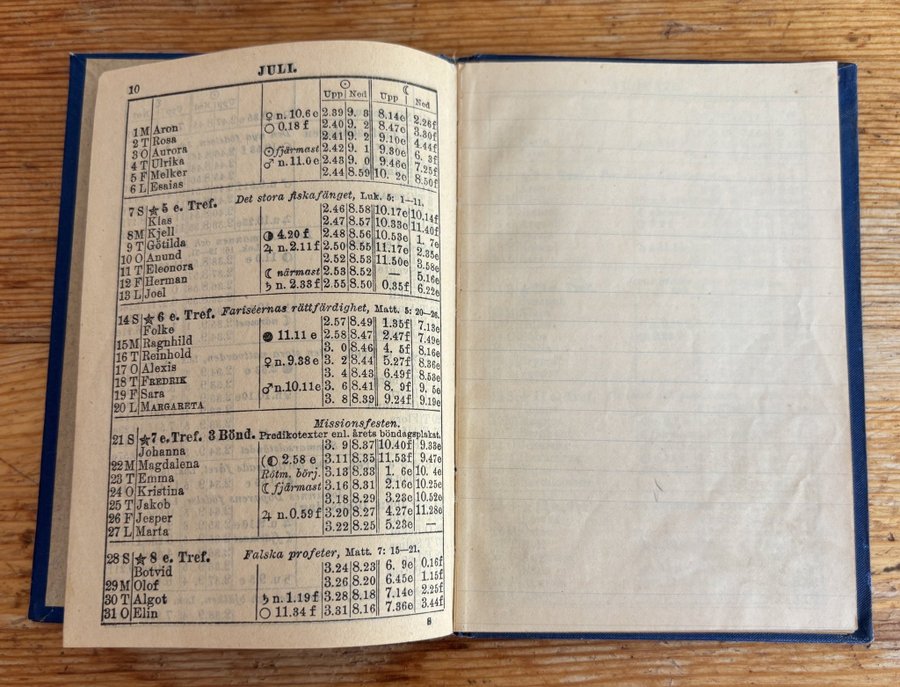 10 JULI.
☉ ☾
Upp Ned Upp Ned
1 M Aron ♀ n. 10.6 e 2.39 9. 3 8.14e 2.26f
2 T Rosa ○ 0.18 f 2.40 9. 2 8.47e 3.30f
3 O Aurora 2.41 9. 2 9.10e 4.44f
4 T Ulrika ☉ fjärmast 2.42 9. 1 9.30e 6. 3f
5 F Melker ♂ n. 11.0 e 2.43 9. 0 9.46e 7.25f
6 L Esaias 2.44 8.59 10. 2e 8.50f
7 S ★ 5 e. Tref. Det stora fiskafänget, Luk. 5: 1—11.
Klas 2.46 8.58 10.17e 10.14f
8 M Kjell 2.47 8.57 10.33e 11.40f
9 T Götilda ◑ 4.20 f 2.48 8.56 10.53e 1. 7e
10 O Anund ♃ n. 2.11 f 2.50 8.55 11.17e 2.35e
11 T Eleonora 2.52 8.53 11.50e 3.58e
12 F Herman ☾ närmast 2.53 8.52 — 5.16e
13 L Joel ♄ n. 2.33 f 2.55 8.50 0.35f 6.22e
14 S ★ 6 e. Tref. Fariséernas rättfärdighet, Matt. 5: 20—26.
Folke 2.57 8.49 1.35f 7.13e
15 M Ragnhild ● 11.11 e 2.58 8.47 2.47f 7.49e
16 T Reinhold 3. 0 8.46 4. 5f 8.16e
17 O Alexis ♀ n. 9.38 e 3. 2 8.44 5.27f 8.36e
18 T FREDRIK 3. 4 8.43 6.49f 8.53e
19 F Sara ♂ n. 10.11e 3. 6 8.41 8. 9f 9. 5e
20 L MARGARETA 3. 8 8.39 9.24f 9.19e
Missionsfesten.
21 S ★ 7 e. Tref. 3 Bönd. Predikotexter enl. årets böndagsplakat.
Johanna 3. 9 8.37 10.40f 9.33e
22 M Magdalena ◐ 2.58 e 3.11 8.35 11.53f 9.47e
23 T Emma Rötm. börj. 3.13 8.33 1. 6e 10. 4e
24 O Kristina ☾ fjärmast 3.16 8.31 2.16e 10.25e
25 T Jakob 3.18 8.29 3.23e 10.52e
26 F Jesper ♃ n. 0.59 f 3.20 8.27 4.27e 11.28e
27 L Marta 3.22 8.25 5.23e —
28 S ★ 8 e. Tref. Falska profeter, Matt. 7: 15—21.
Botvid 3.24 8.23 6. 9e 0.16f
29 M Olof 3.26 8.20 6.45e 1.15f
30 T Algot ♄ n. 1.19 f 3.28 8.18 7.14e 2.25f
31 O Elin ○ 11.34 f 3.31 8.16 7.36e 3.44f
8